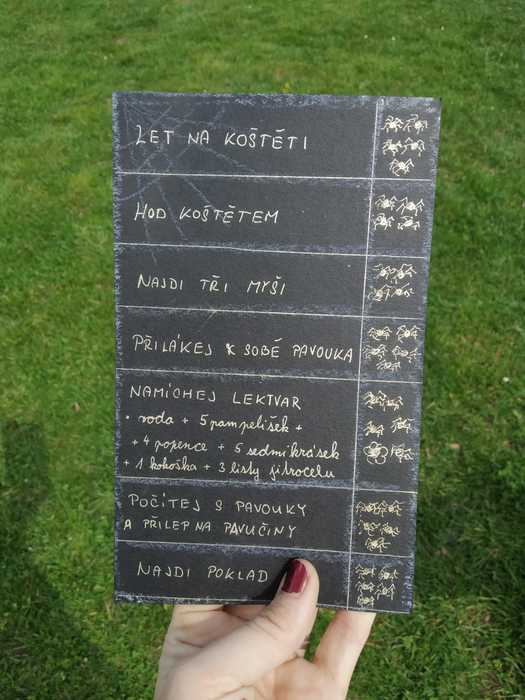 LET NA KOŠTĚTI
HOD KOŠTĚTEM
NAJDI TŘI MYŠI
PŘILÁKEJ K SOBĚ PAVOUKA
NAMÍCHEJ LEKTVAR
• voda + 5 pampelišek +
+ 4 popence + 5 sedmikrásek
+ 1 kokoška + 3 listy jitrocelu
POČÍTEJ S PAVOUKY
A PŘILEP NA PAVUČINY
NAJDI POKLAD